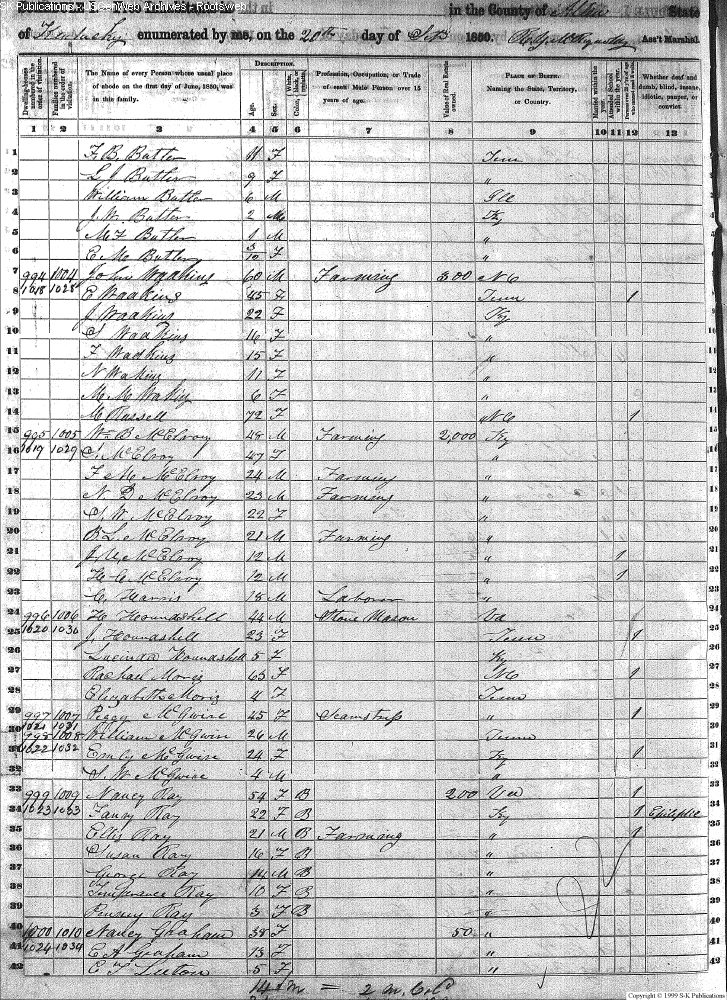 S-K Publications - USGenWeb Archives - Rootsweb
in the County of State
of Kentucky enumerated by me, on the 20th day of 1850. Ass't Marshal.
Dwelling-houses numbered in the order of visitation.
Families numbered in the order of visitation.
The Name of every Person whose usual place of abode on the first day of June, 1850, was in this family.
DESCRIPTION.
Age.
Sex.
Color, White, black, or mulatto.
Profession, Occupation, or Trade of each Male Person over 15 years of age.
Value of Real Estate owned.
PLACE OF BIRTH. Naming the State, Territory, or Country.
Married within the year.
Attended School within the year.
Persons over 20 y'rs of age who cannot read & write.
Whether deaf and dumb, blind, insane, idiotic, pauper, or convict.
1 2 3 4 5 6 7 8 9 10 11 12 13
1 F. B. Butler 11 F Tenn
2 L. J. Butler 9 F "
3 William Butler 6 M Ill
4 J. W. Butler 2 M Ky
5 M F. Butler 1 M "
6 E. M. Butler 3/10 F "
7 994 1004 John Waakins 60 M Farming 300 NC
8 1018 1028 E Waakins 45 F Tenn 1
9 J Waakins 22 F Ky
10 S Waakins 16 F "
11 F Wadkins 15 F "
12 N Wakins 11 F "
13 M. M Wakins 6 F "
14 M Russell 72 F NC 1
15 995 1005 Wm B McElroy 48 M Farming 2,000 Ky
16 1019 1029 S. McElroy 47 F "
17 F M McElroy 24 M Farming "
18 N D McElroy 23 M Farming "
19 S. W. McElroy 22 F "
20 B L. McElroy 21 M Farming "
21 McElroy 12 M " 1
22 H C. McElroy 12 M " 1
23 C. Harris 18 M Laborer "
24 996 1006 H Hounshell 44 M Stone Mason Va
25 1020 1030 J. Hounshell 23 F Tenn 1
26 Lucinda Hounshell 5 F Ky
27 Rachael 63 F NC 1
28 Elizabeth 4 F Tenn
29 997 1007 Peggy McGwire 45 F Seamstress " 1
30 1021 1031 998 1008 William McGwire 26 M Tenn
31 1022 1032 Emily McGwire 24 F Ky 1
32 S. W McGwire 4 M "
33 999 1009 Nancy Ray 54 F B 200 Va 1
34 1023 1033 Ray 22 F B Ky 1 Epileptic
35 Ellis Ray 21 M B Farming " 1
36 Susan Ray 16 F B "
37 George Ray 14 M B "
38 Temperance Ray 10 F B "
39 Ray 3 F B "
40 1000 1010 Nancy Graham 38 F 50 "
41 1024 1034 E A Graham 13 F "
42 E F 5 F "
= 2 m. Col'd
Copyright © 1999 S-K Publications